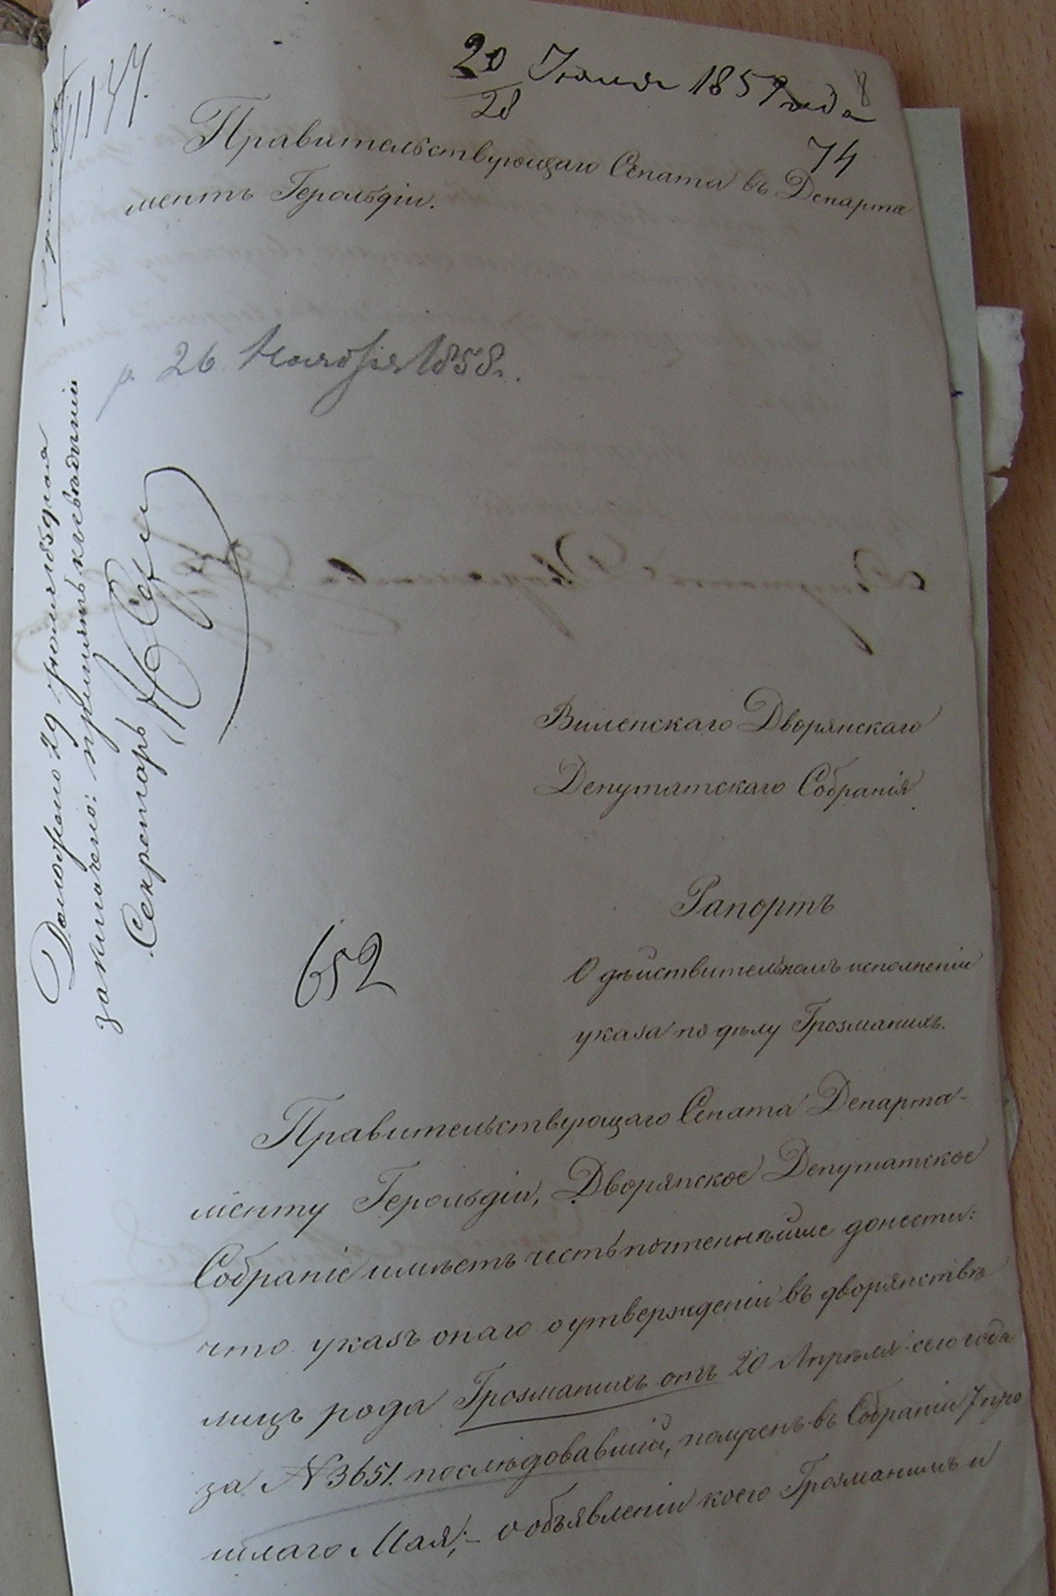 20 Іюля 1859 года
28
8
74
Правительствующаго Сената въ Департа
ментъ Герольдіи.
26 Ноября 1858.
Доложено 29 Іюля 1859 дня
заключено: принять къ свѣдѣнію
Секретарь
Виленскаго Дворянскаго
Депутатскаго Собранія
Рапортъ
О дѣйствительномъ исполненіи
указа по дѣлу Грозманихъ.
652
Правительствующаго Сената Департа-
менту Герольдіи, Дворянское Депутатское
Собраніе имѣетъ честь почтеннѣйше донести:
что указъ онаго о утвержденіи въ дворянствѣ
лицъ рода Грозманихъ отъ 20 Апрѣля сего года
за № 3651. послѣдовавшій, полученъ въ Собраніи 7 про
шлаго Мая; - о объявленіи коего Грозманимъ и